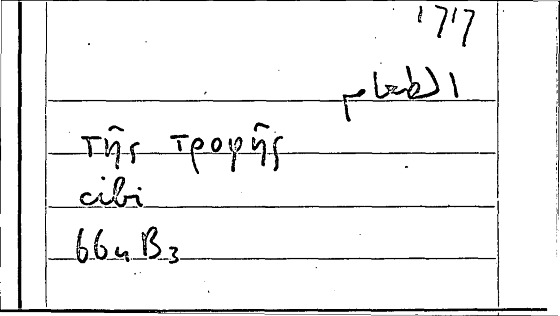 1717
الطعام
τῆς τροφῆς
cibi
664 B3